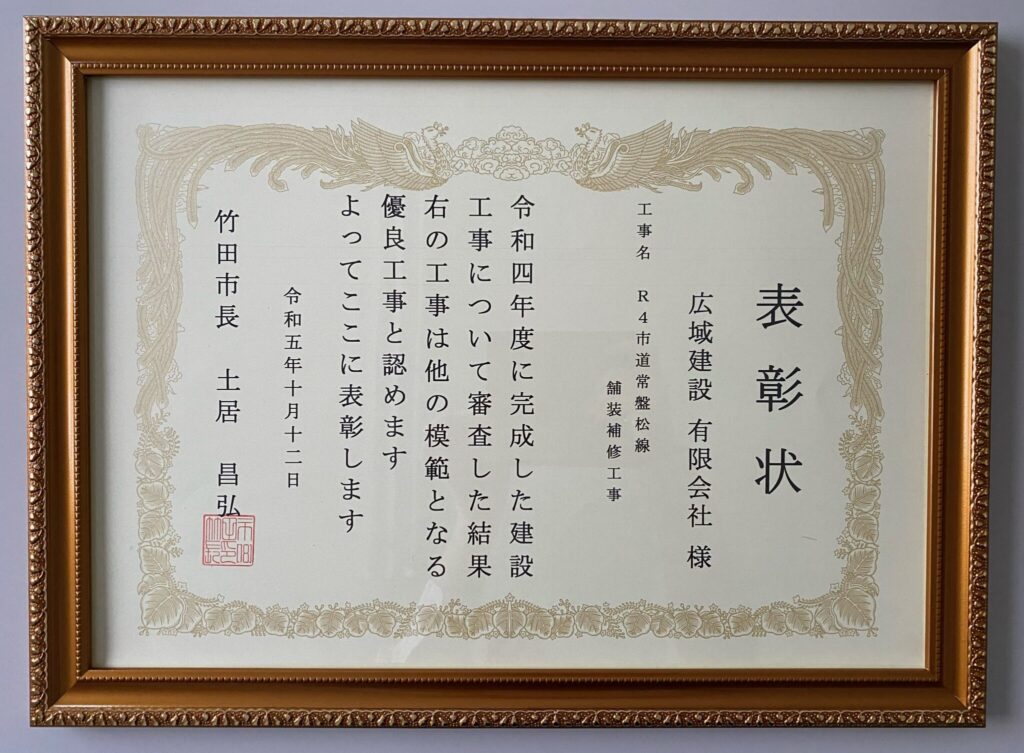 表彰状
広域建設 有限会社 様
工事名 R4市道常盤松線
舗装補修工事
令和四年度に完成した建設
工事について審査した結果
右の工事は他の模範となる
優良工事と認めます
よってここに表彰します
令和五年十月十二日
竹田市長 土居 昌弘